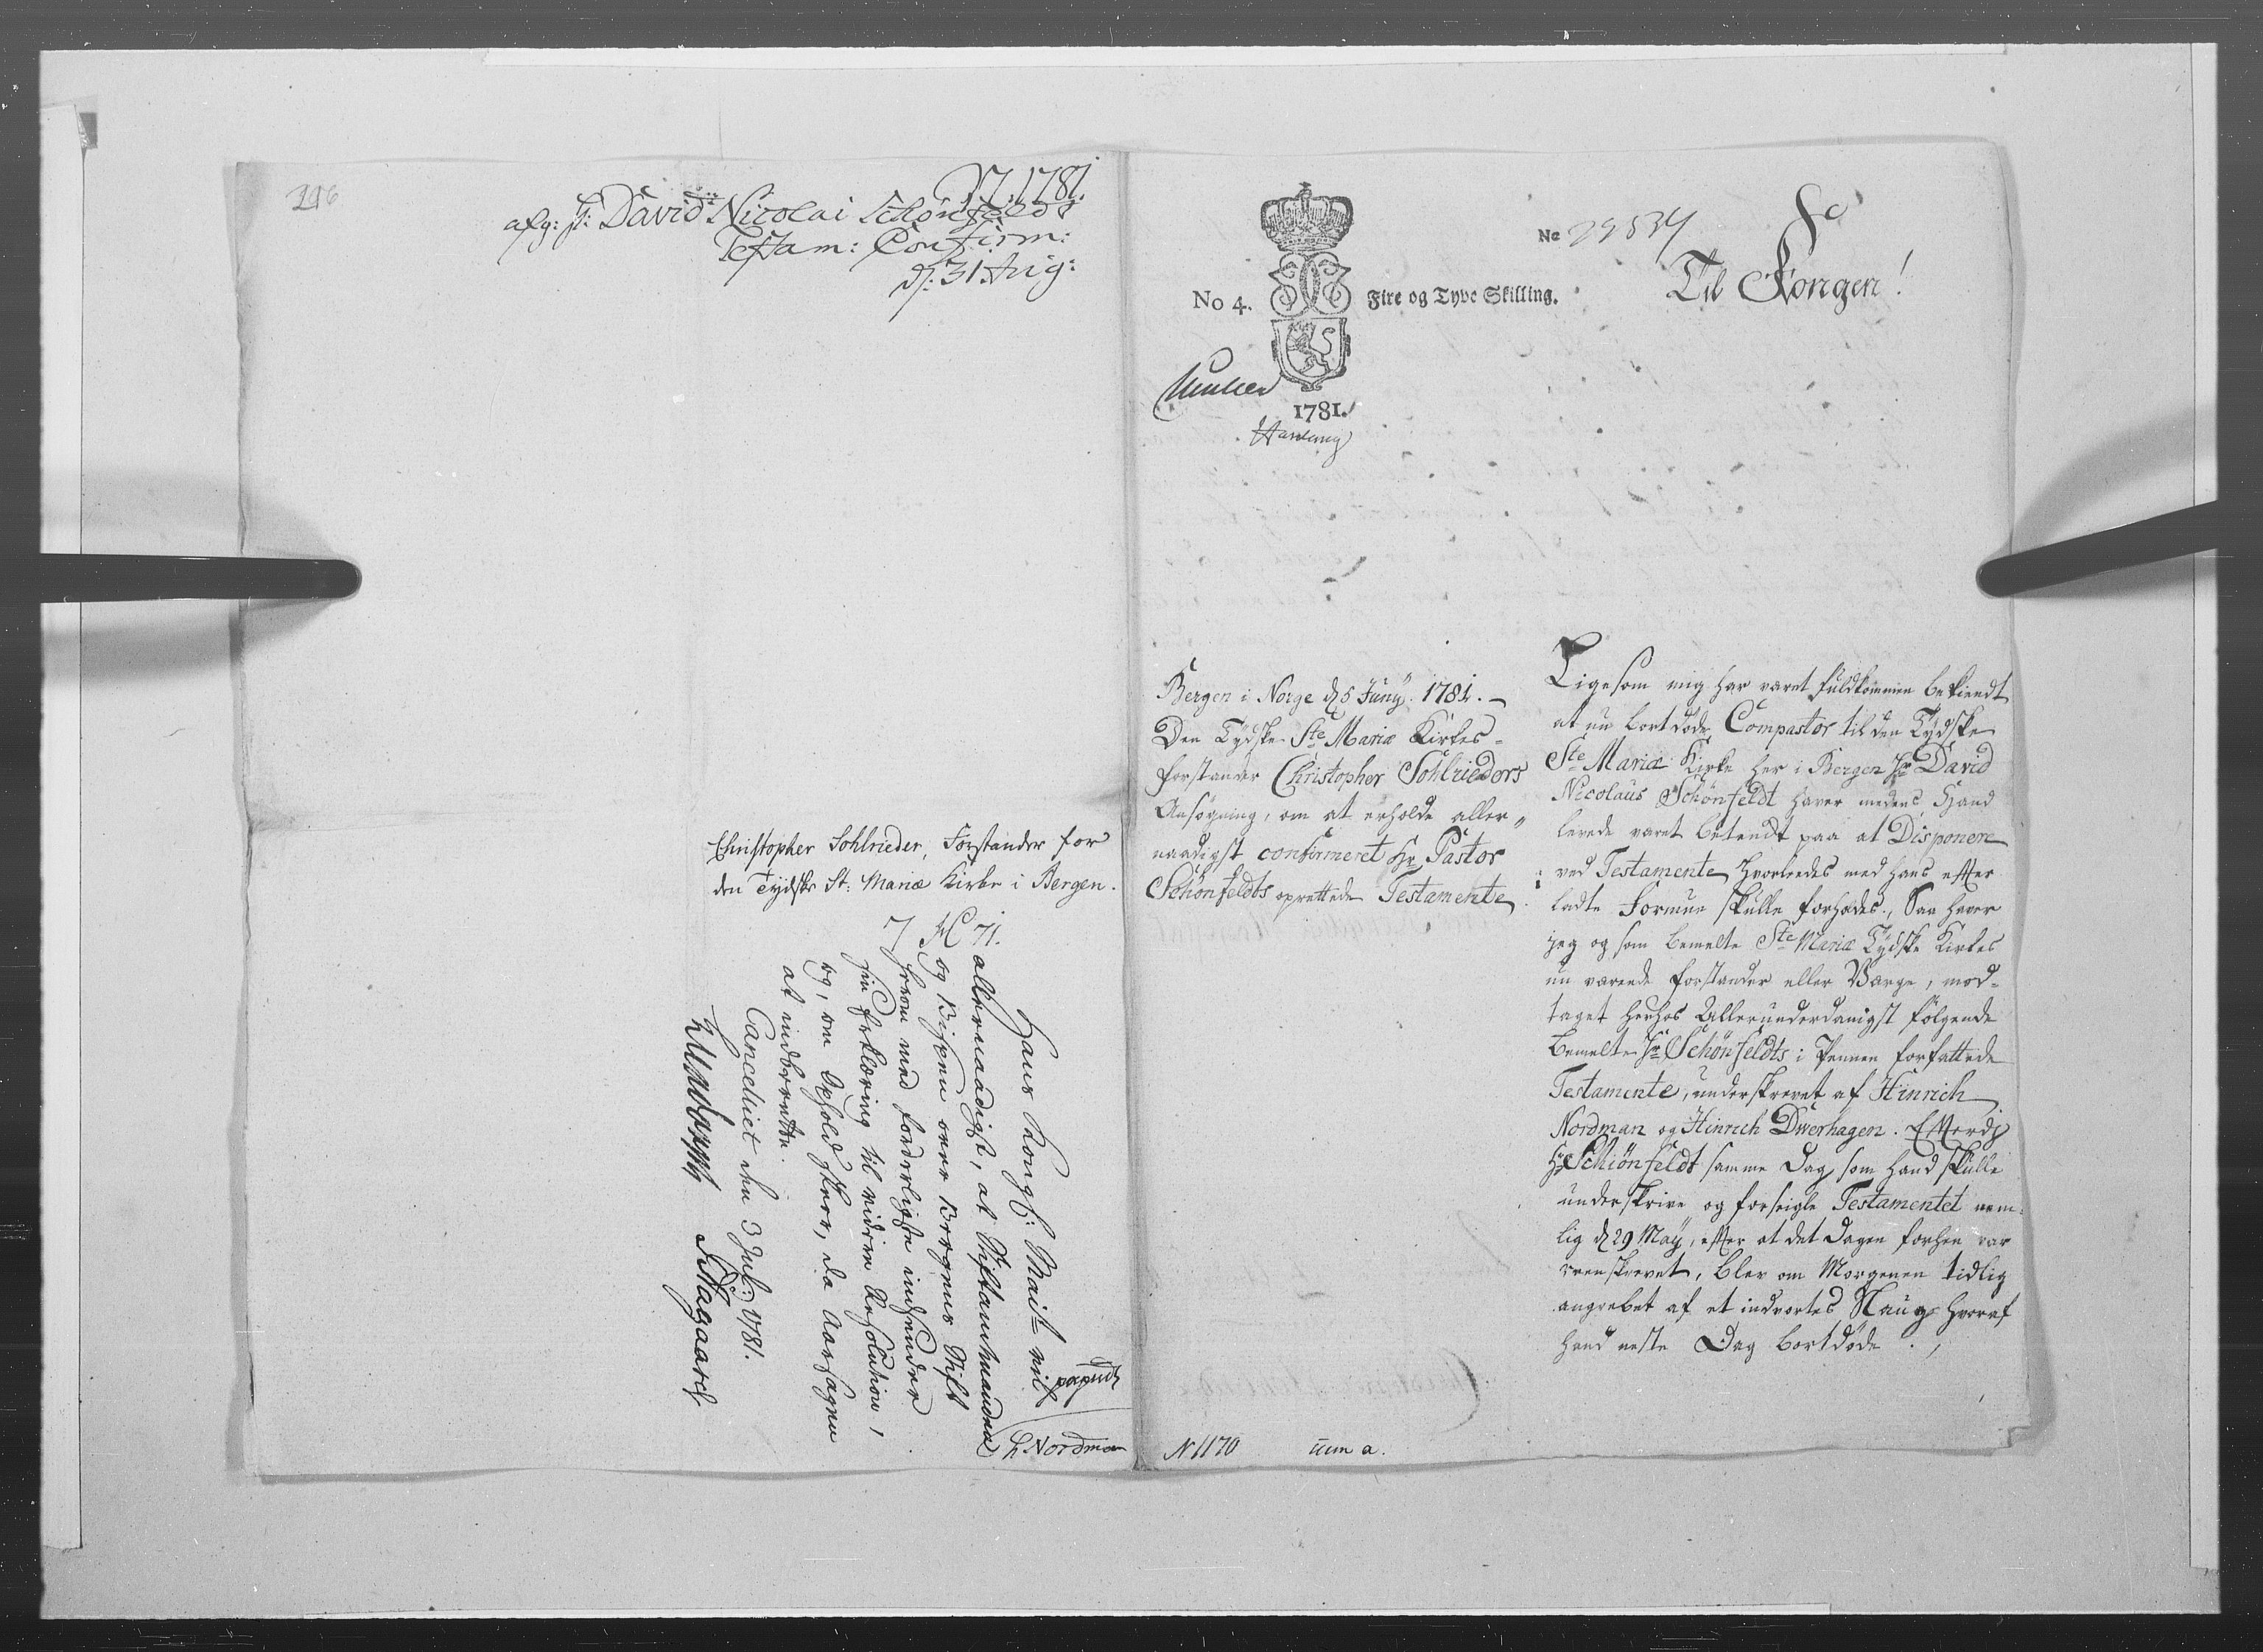 116
17.1781.
afg: H: David Nicolai Schönfelds
Testam: Confirm:
d: 31 Aug:
Christopher Sohlrieder, Forstander for
den Tydske St: Mariæ Kirke i Bergen.
7 H 71.
Hans Kongl: Maist: vil
allernaadigst, at Stiftamtmanden
og Bispen over Bergens Stift
herom med forderligste indsender
sin Erklæring til videre Resolution,
og, om Ophold skeer, da Aarsagen
at indberette.
Cancelliet den 3 Julij 1781.
Aagaard
H Nordman
No 4.
Fire og Tyve Skilling.
1781.
Hartung
No 29534
Til Kongen!
Bergen i Norge d. 5 Junÿ. 1781.-
Den Tydske Ste Mariæ Kirkes-
forstander Christopher Sohlrieders
Ansøgning, om at erholde aller-
naadigst confirmeret Hr Pastor
Schönfeldts oprettede Testamente.
N 1170
Ligesom mig har været fuldkommen bekiendt
at nu bortdøde Compastor til den Tydske
Ste Mariæ Kirke her i Bergen Hr David
Nicolaus Schönfeldt haver medens Hand
levede været betænkt paa at Disponere
ved Testamente hvorledes med hans efter
ladte Formue skulle forholdes., Saa haver
jeg og som bemelte Ste Mariæ Tydske Kirkes
nu værende forstander eller Værge, mod-
taget herhos Allerunderdanigst følgende
bemelte Hr Schönfeldts i Pennen forfattede
Testamente, underskrevet af Hinrich
Nordman og Hinrich Dwerhagen. Efterdj
Hr Schiönfeldt samme Dag som hand skulle
underskrive og forseigle Testamentet nem-
lig d. 29 Maÿ, efter at det Dagen forhen var
reenskrevet, blev om Morgenen tidlig
angrebet af et indvortes Slaug hvoraf
hand neste Dag bortdøde.,